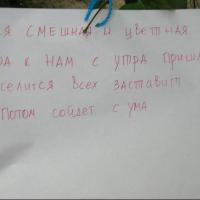 СМЕШНАЯ И ЦВЕТНАЯ
К НАМ С УТРА ПРИШЛ
СЕЛИТСЯ ВСЕХ ЗАСТАВИТ
ПОТОМ СОЙДЕТ С УМА